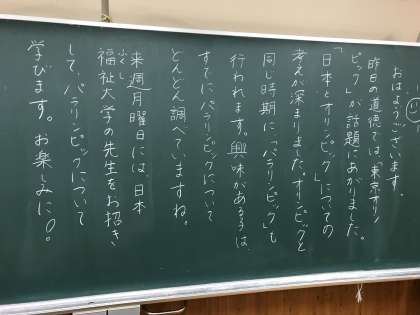 おはようございます。
昨日の道徳では、東京オリン
ピック」が話題にあがりました。
「日本とオリンピック」についての
考えが深まりました。オリンピックと
同じ時期に、「パラリンピック」も
行われます。興味がある子は、
すでにパラリンピックについて
どんどん調べていますね。
来週月曜日には、日本
福祉大学の先生をお招き
ふくし
して、パラリンピックについて
学びます。お楽しみに!